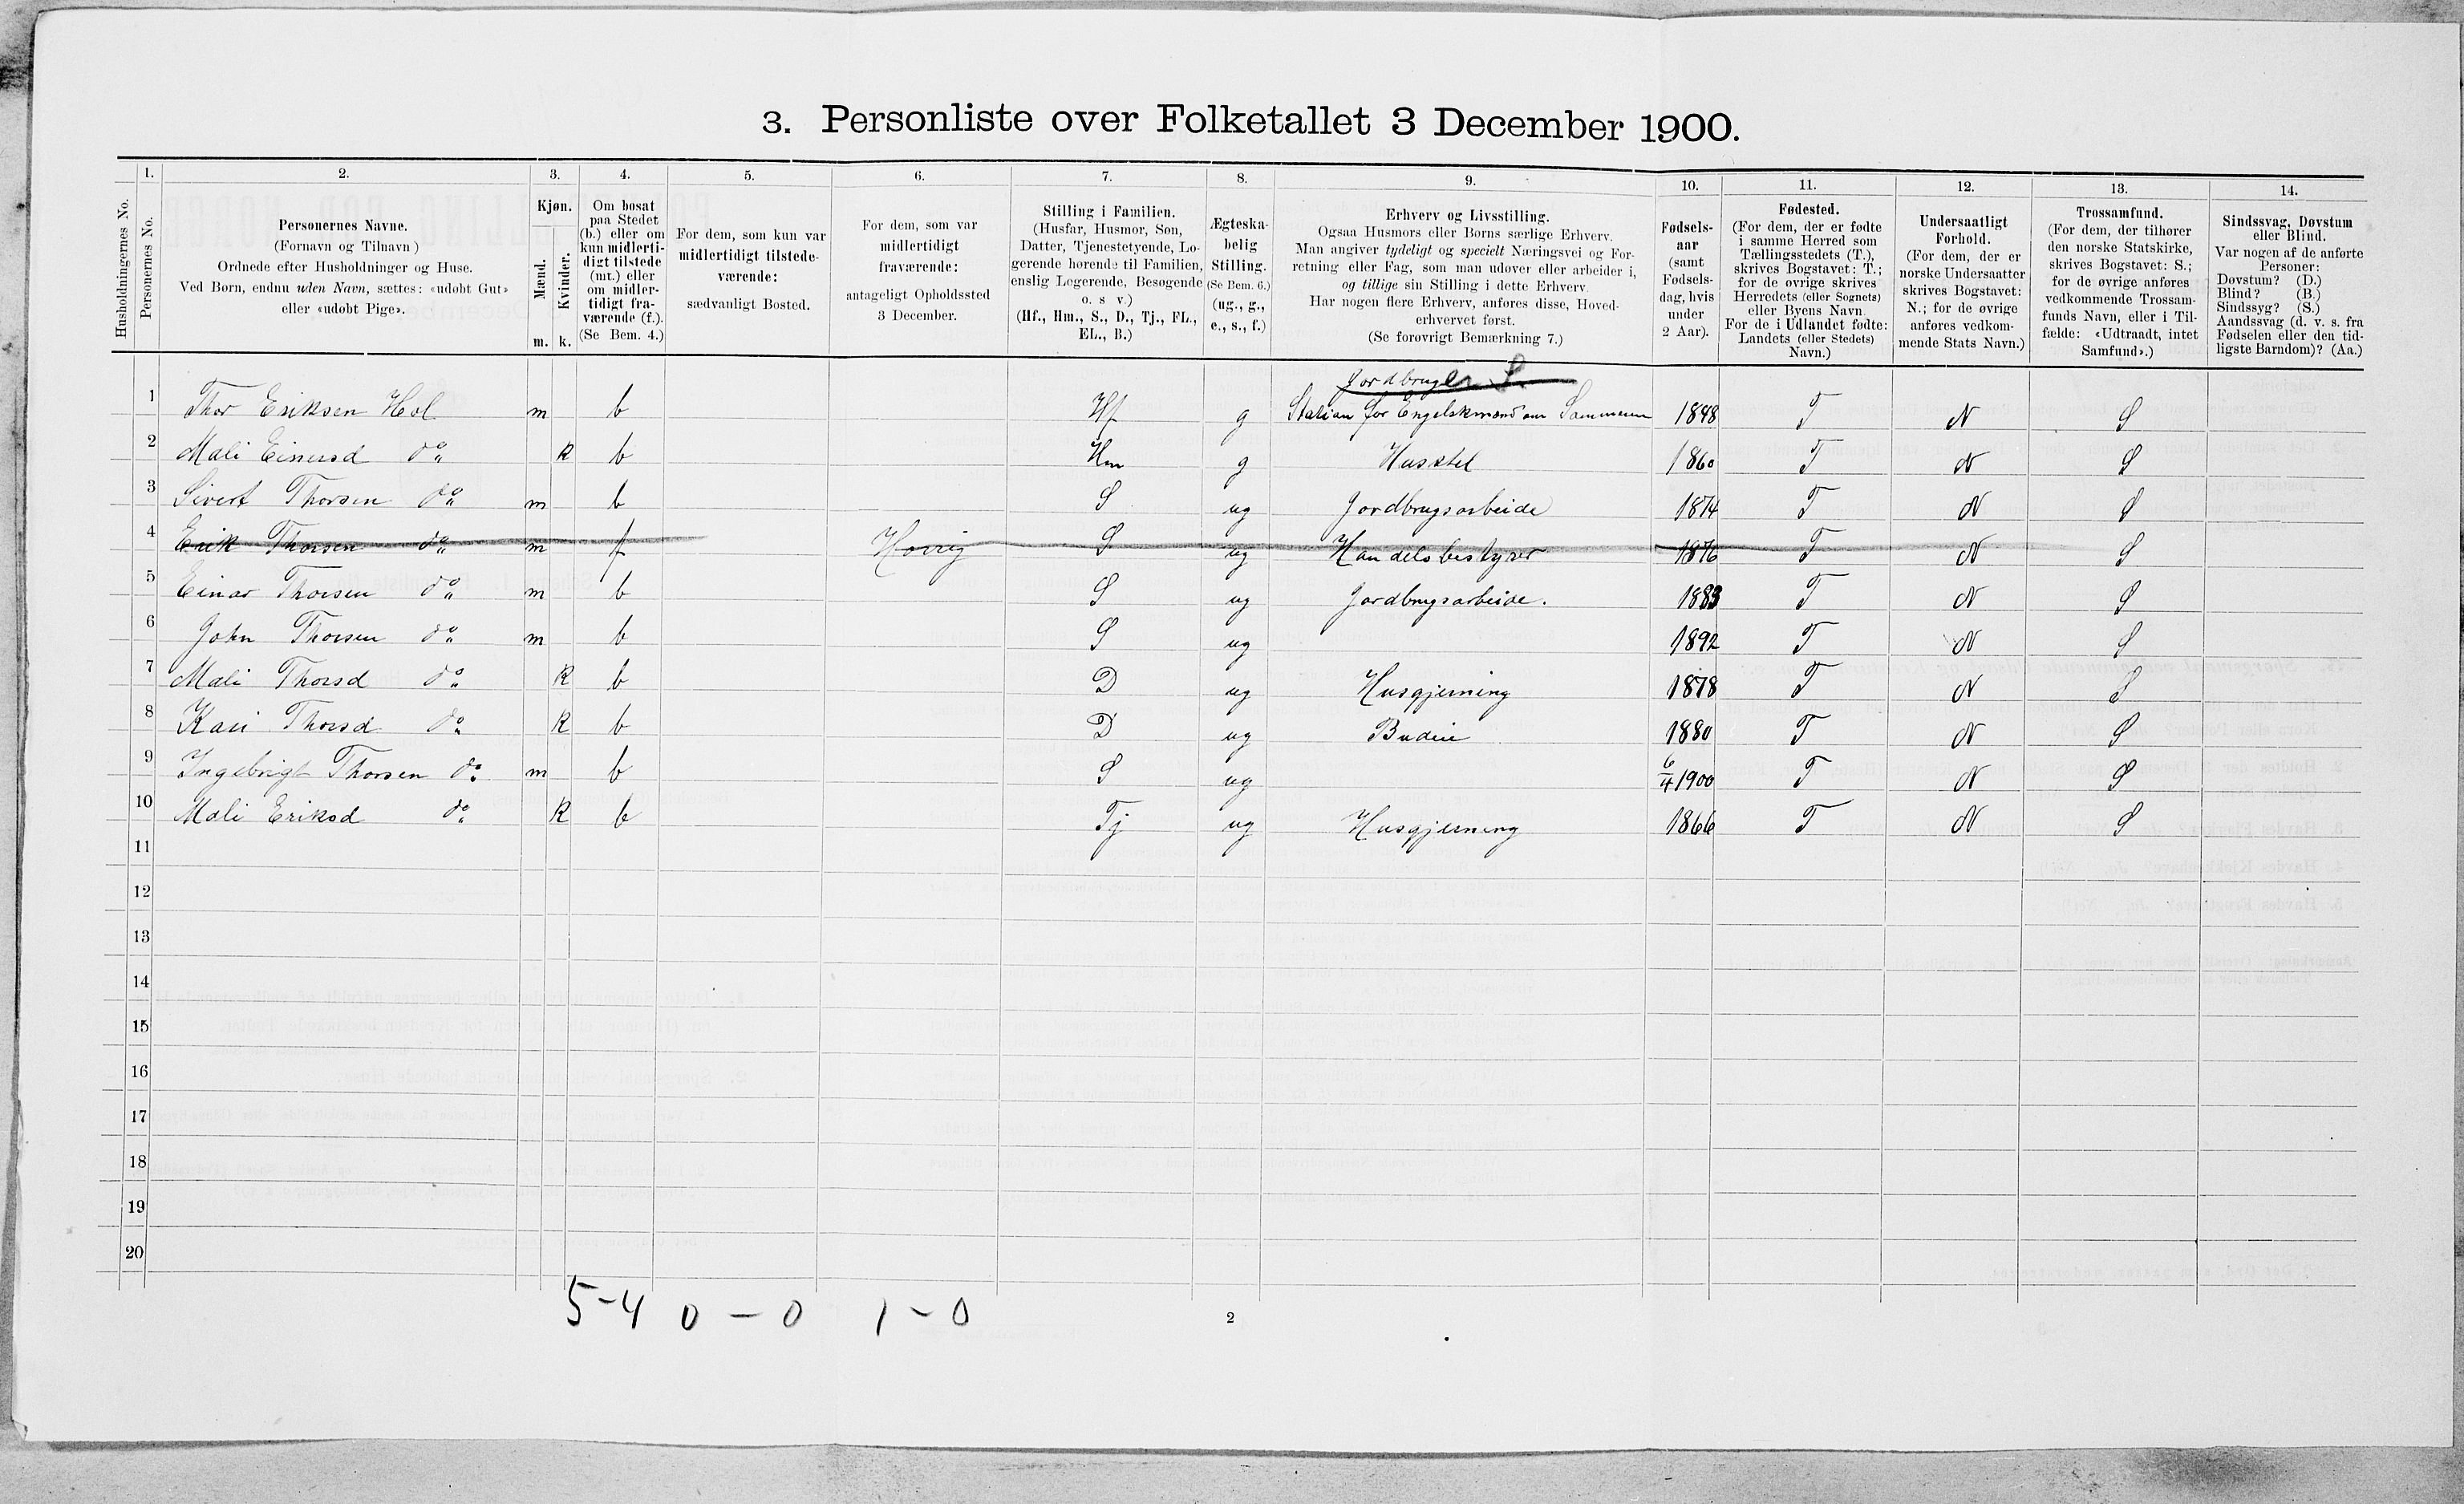 3. Personliste over Folketallet 3 December 1900.
1. 2. 3. 4. 5. 6. 7. 8. 9. 10. 11. 12. 13. 14.
Husholdningernes No.
Personernes No.
Personernes Navne.
(Fornavn og Tilnavn)
Ordnede efter Husholdninger og Huse.
Ved Børn, endnu uden Navn, sættes: «udøbt Gut»
eller «udøbt Pige».
Kjøn.
Mænd.
Kvinder.
m. k.
Om bosat
paa Stedet
(b.) eller om
kun midlerti-
digt tilstede
(mt.) eller
om midler-
tidigt fra-
værende (f.).
(Se Bem. 4.)
For dem, som kun var
midlertidigt tilstede-
værende:
sædvanligt Bosted.
For dem, som var
midlertidigt
fraværende:
antageligt Opholdssted
3 December.
Stilling i Familien.
(Husfar, Husmor, Søn,
Datter, Tjenestetyende, Lo-
gerende hørende til Familien,
enslig Logerende, Besøgende
o. s v.)
(Hf., Hm., S., D., Tj., FL.,
EL., B.)
Ægteska-
belig
Stilling.
(Se Bem. 6.)
(ug., g.,
e., s., f.)
Erhverv og Livsstilling.
Ogsaa Husmors eller Børns særlige Erhverv.
Man angiver tydeligt og specielt Næringsvei og For-
retning eller Fag, som man udøver eller arbeider i,
og tillige sin Stilling i dette Erhverv.
Har nogen flere Erhverv, anføres disse, Hoved-
erhvervet først.
(Se forøvrigt Bemærkning 7.)
Fødsels-
aar
(samt
Fødsels-
dag, hvis
under
2 Aar).
Fødested.
(For dem, der er fødte
i samme Herred som
Tællingsstedets (T.),
skrives Bogstavet: T.;
for de øvrige skrives
Herredets (eller Sognets)
eller Byens Navn.
For de i Udlandet fødte:
Landets (eller Stedets)
Navn.)
Undersaatligt
Forhold.
(For dem, der er
norske Undersaatter
skrives Bogstavet:
N.; for de øvrige
anføres vedkom-
mende Stats Navn.)
Trossamfund.
(For dem, der tilhører
den norske Statskirke,
skrives Bogstavet: S.;
for de øvrige anføres
vedkommende Trossam-
funds Navn, eller i Til-
fælde: «Udtraadt, intet
Samfund».)
Sindssvag, Døvstum
eller Blind.
Var nogen af de anførte
Personer:
Døvstum? (D.)
Blind? (B.)
Sindssyg? (S.)
Aandssvag (d. v. s. fra
Fødselen eller den tid-
ligste Barndom)? (Aa.)
Jordbruger S
1 Thor Eriksen Hol m b Hf g Station for Engelskmænd om Sommeren 1848 T N S
2 Mali Einersd do k b Hm g Husstel 1860 T N S
3 Sivert Thorsen do m b S ug Jordbrugsarbeide 1874 T N S
4 Erik Thorsen do m f S ug Handelsbestyrer 1876 T N S
5 Einar Thorsen do m b S ug Jordbrugsarbeide. 1883 T N S
6 John Thorsen do m b S ug 1892 T N S
7 Mali Thorsd do k b D ug Husgjerning 1878 T N S
8 Kari Thorsd do k b D ug Budeie 1880 T N S
9 Ingebrigt Thorsen do m b S ug 6/4 1900 T N S
10 Mali Eriksd do k b Tj ug Husgjerning 1866 T N S
11
12
13
14
15
16
17
18
19
20
5-4 0-0 1-0
2